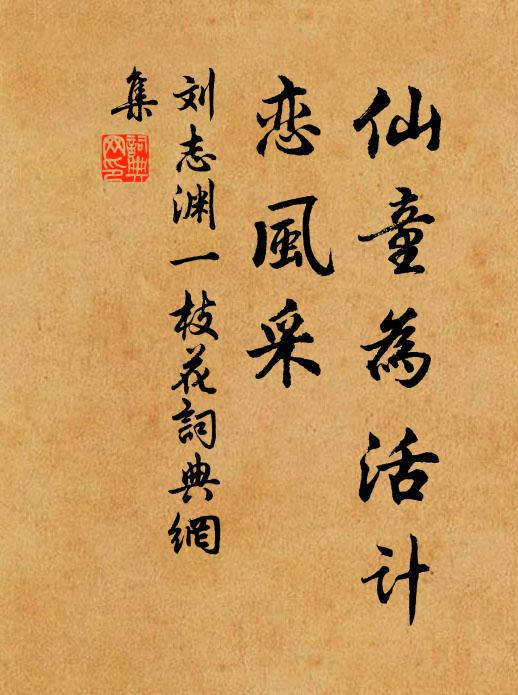 仙童為活计
恋風采
刘志渊一枝花詞典網
集
詞典网印